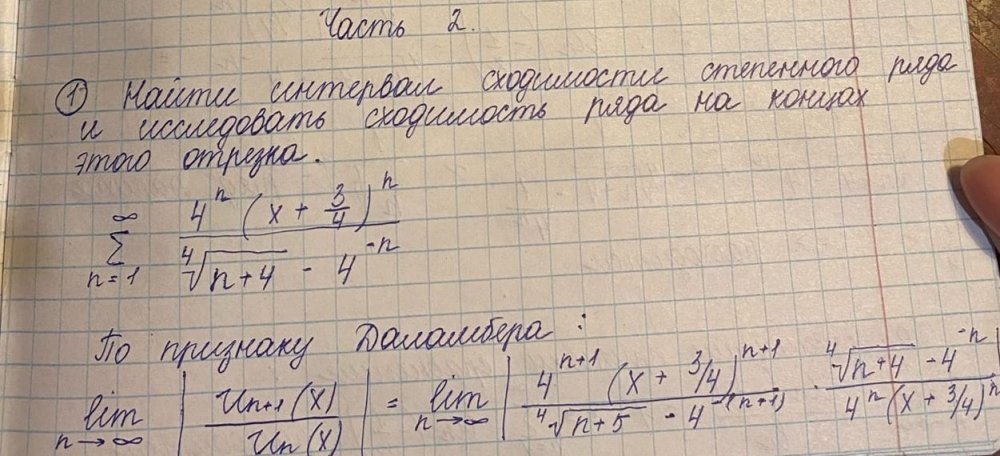 Часть 2.
① Найти интервал сходимости степенного ряда
и исследовать сходимость ряда на концах
этого отрезка.
∞ ∑ n=1 4^n (x + 3/4)^n / (⁴√(n+4) - 4^(-n))
По признаку Даламбера:
lim n→∞ | U_(n+1)(x) / U_n(x) | = lim n→∞ | 4^(n+1) (x + 3/4)^(n+1) / (⁴√(n+5) - 4^(-(n+1))) · (⁴√(n+4) - 4^(-n)) / (4^n (x + 3/4)^n) |